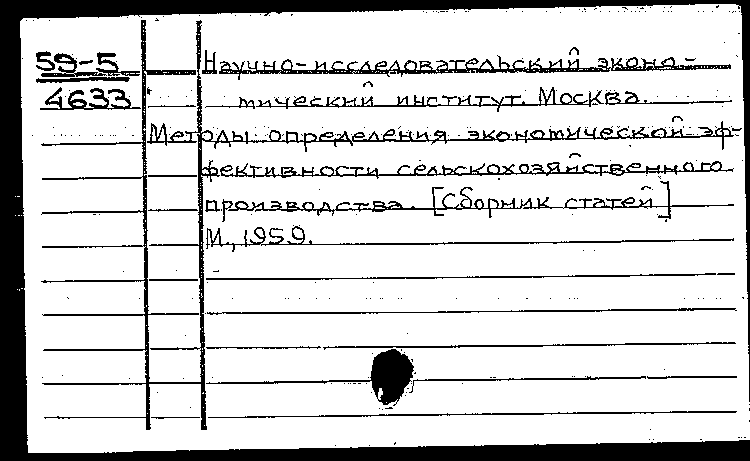 59-5
Научно-исследовательский эконо-
4633
мический институт. Москва.
Методы определения экономической эф-
фективности сельскохозяйственного
производства. [Сборник статей]
М., 1959.